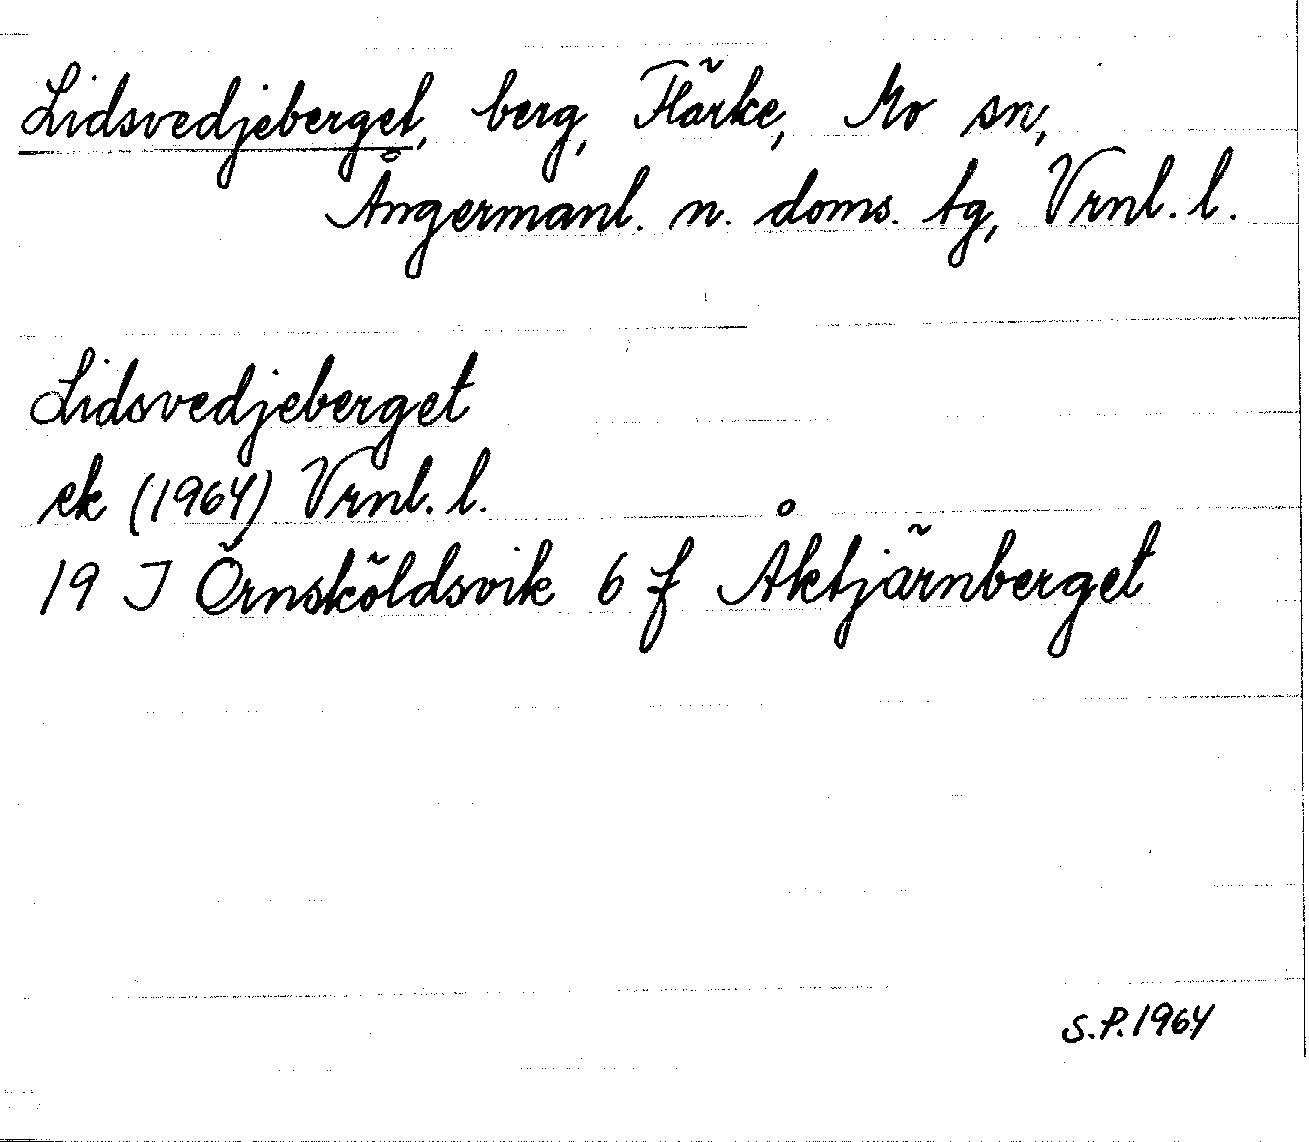 Lidsvedjeberget, berg, Flärke, Mo sn,
Ångermanl. n. doms. tg, Vrnl. l.
Lidsvedjeberget
ek (1964) Vrnl. l.
19 I Örnsköldsvik 6 f Åktjärnberget
S.P. 1964